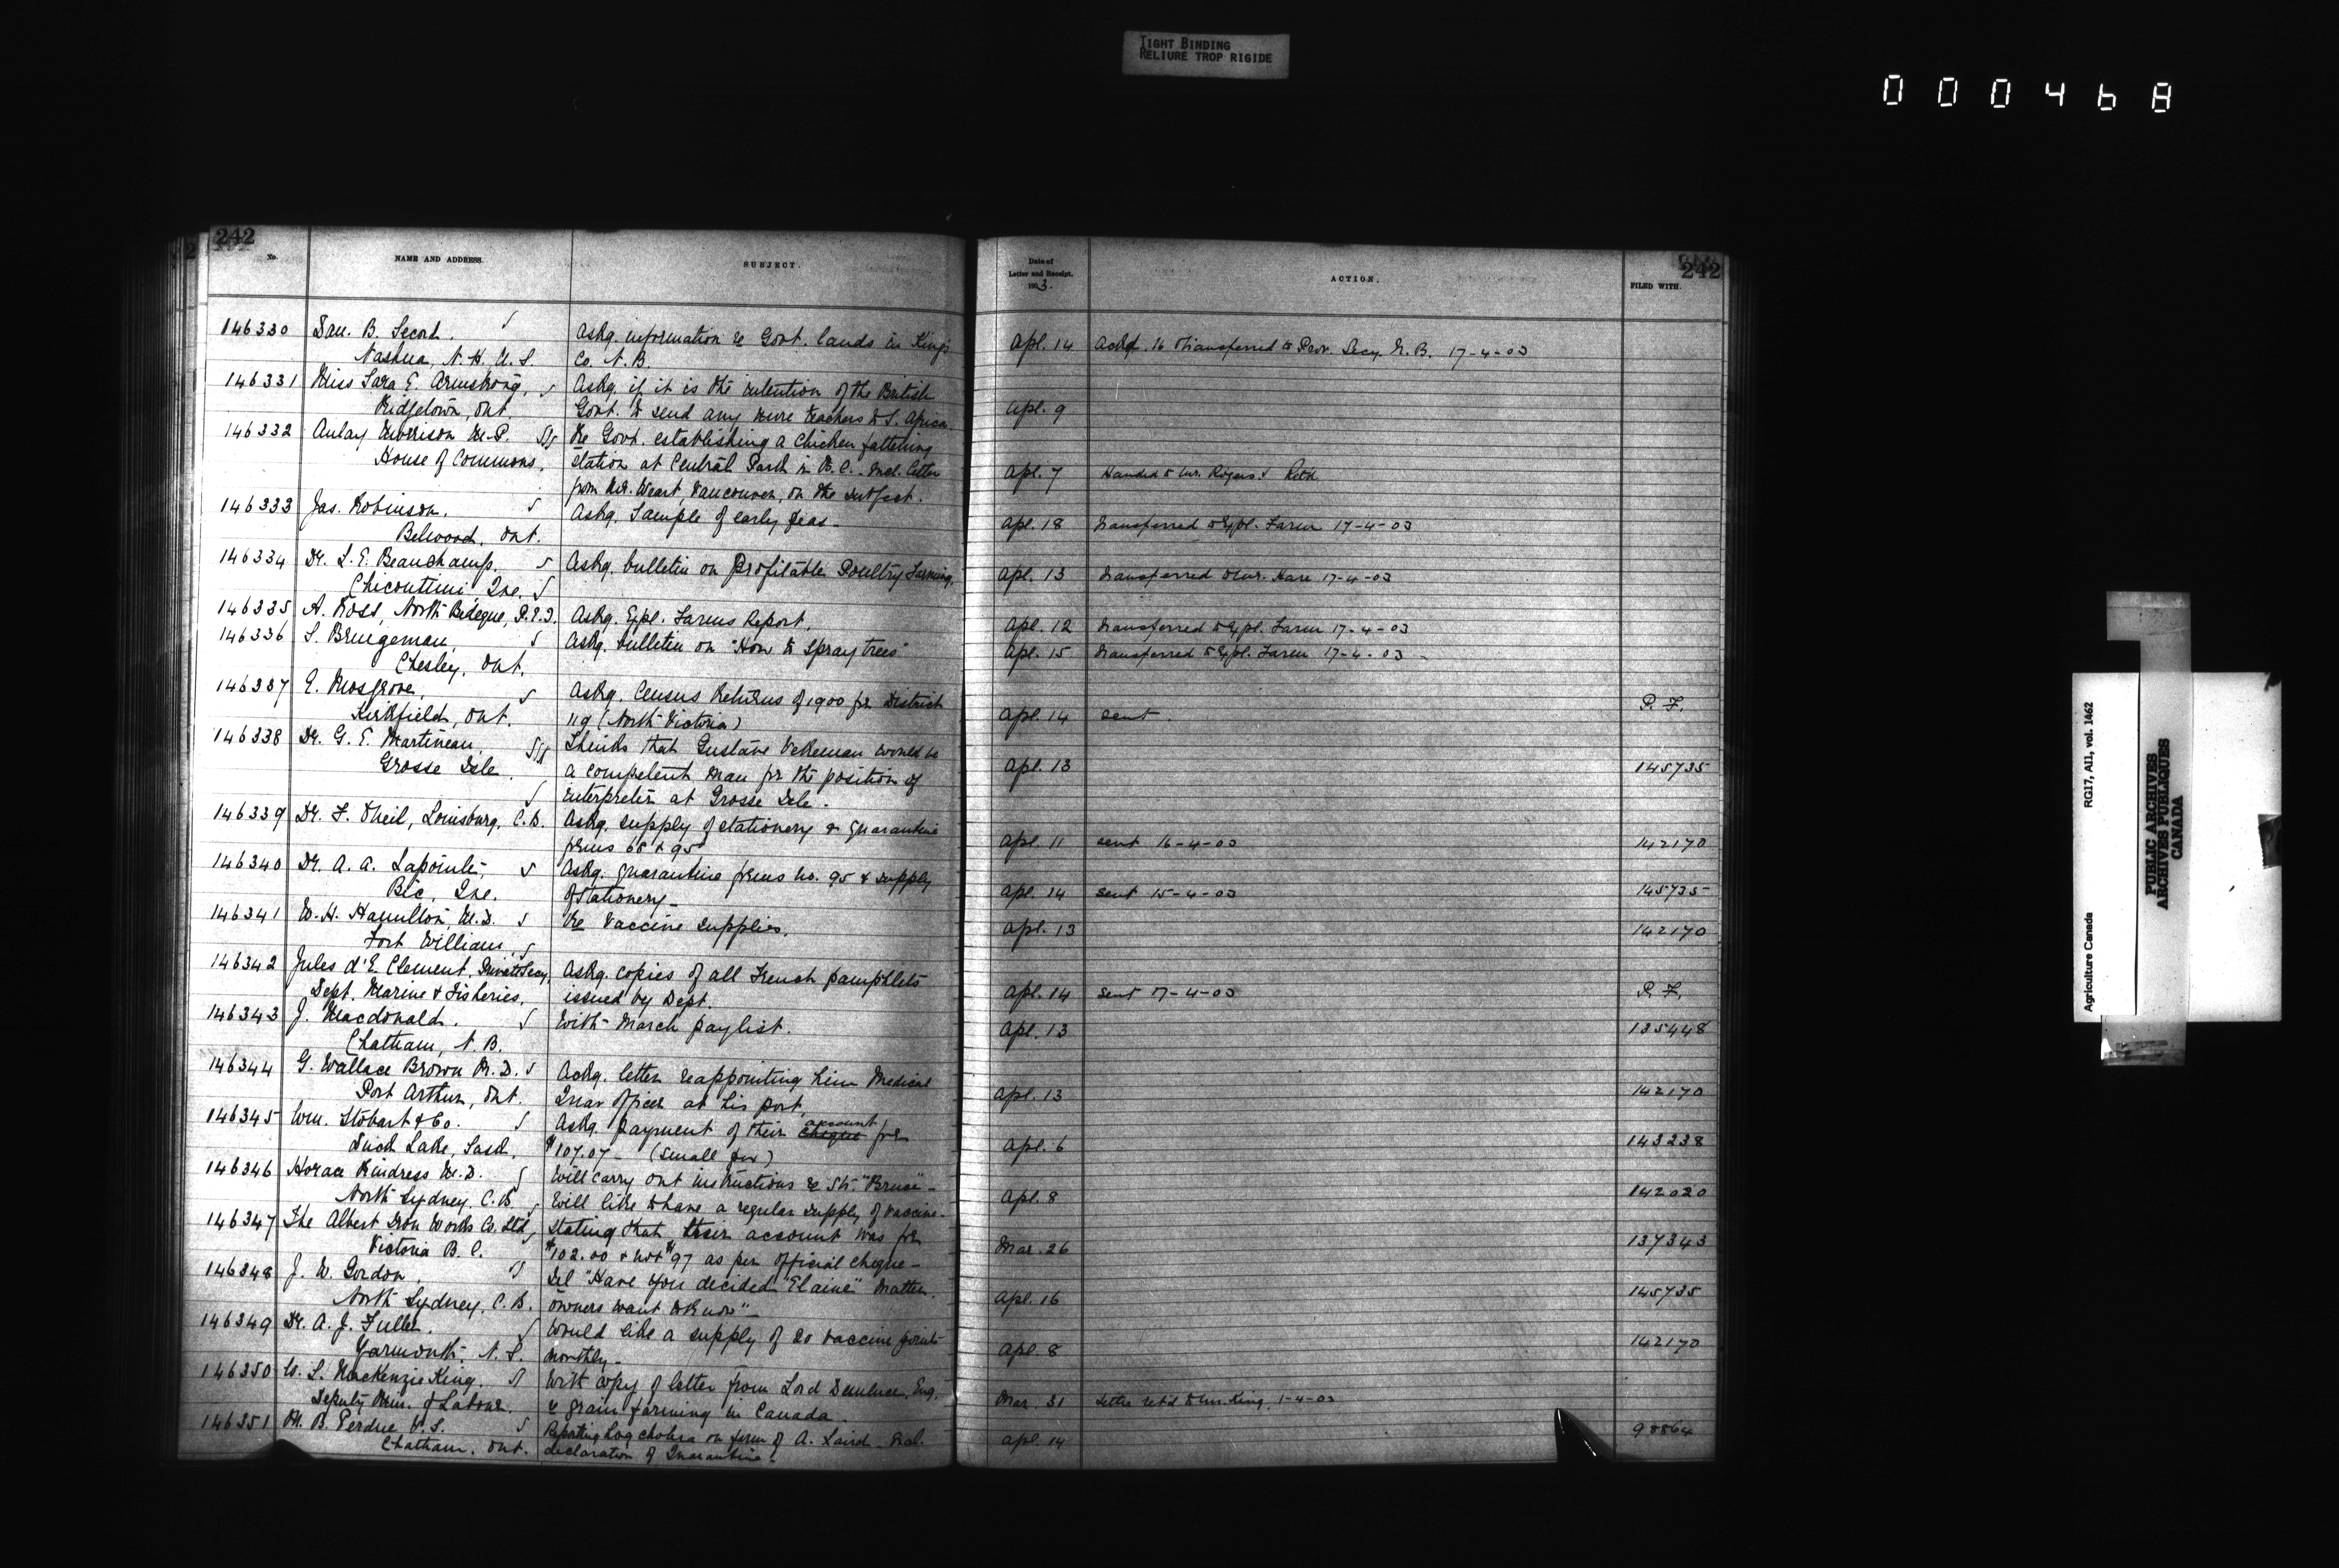 TIGHT BINDING
RELIURE TROP RIGIDE
000468
242
No. NAME AND ADDRESS. SUBJECT.
146330 Dan. B. Secord. Askg. information re Govt. lands in Kings
Nashua, N.H. U.S. Co. N.B.
146331 Miss Sara E. Armstrong, Askg. if it is the intention of the British
Ridgetown, Ont. Govt. to send any more teachers to S. Africa.
146332 Aulay Morrison M.P. Re Govt. establishing a chicken fattening
House of Commons, station at Central Park in B.C. - Incl. letter
from Mr. Weart, Vancouver, on the subject.
146333 Jas. Robinson. Askg. Sample of early peas -
Belwood, Ont.
146334 Dr. L. E. Beauchamp. Askg. bulletin on Profitable Poultry Farming.
Chicoutimi, Que.
146335 A. Ross, North Bedeque, P.E.I. Askg. Expl. Farms Report,
146336 S. Bruegeman, Askg. bulletin on "How to Spray trees"
Chesley, Ont.
146337 E. Mosgrove, Askg. Census Returns of 1900 for District
Kirkfield, Ont. 119 (North Victoria)
146338 Dr. G. E. Martineau. Thinks that Gustave Vekeman would be
Grosse Isle. a competent man for the position of
interpreter at Grosse Isle -
146339 Dr. F. O'Neil, Louisburg, C.B. Askg. supply of stationery & quarantine
forms 68 & 95
146340 Dr. A. A. Lapointe, Askg. quarantine forms no. 95 & supply
Bic, Que. of stationery -
146341 W. H. Hamilton, M.D. Re Vaccine supplies.
Fort William,
146342 Jules d'E. Clement, Private Secy, Askg. copies of all French pamphlets
Dept. Marine & Fisheries. issued by Dept.
146343 J. Macdonald. With March paylist.
Chatham, N.B.
146344 G. Wallace Brown M.D. Ackg. letter reappointing him Medical
Port Arthur, Ont. Quar officer at his port,
146345 Wm. Stobart & Co. Askg. payment of their cheque account for
Duck Lake, Sask, $107.07 - (Small pox)
146346 Horace Rindress M.D. Will carry out instructions re Str. "Bruce" -
North Sydney, C.B. Will like to have a regular supply of vaccine -
146347 The Albert Iron Works Co. Ltd, Stating that their account was for
Victoria B.C. $102.00 & not $97 as per official cheque -
146348 J. W. Gordon, Tel "Have you decided "Elaine" matter.
North Sydney, C.B. owners want to know" -
146349 Dr. A. J. Fuller. Would like a supply of 20 vaccine points
Yarmouth, N.S. monthly -
146350 W. L. MacKenzie King. With copy of letter from Lord Eng.
Deputy Min. of Labour. re grain farming in Canada.
146351 M. B. Perdue V.S. Reporting hog cholera on farm of A. Laird - Incl.
Chatham, Ont. declaration of Quarantine -
242
Date of
Letter and Receipt. ACTION. FILED WITH.
1903.
Apl. 14 Ackd. & transferred to Prov. Secy. N.B. 17-4-03
Apl. 9
Apl. 7 Handed to Mr. Rogers. Retd
Apl. 18 Transferred to Expl. Farm 17-4-03
Apl. 13 Transferred to Mr. Hare 17-4-03
Apl. 12 Transferred to Expl. Farm 17-4-03
Apl. 15 Transferred to Expl. Farm 17-4-03
Apl. 14 sent. P. F.
Apl. 13 145735
Apl. 11 sent 16-4-03 142170
Apl. 14 sent 15-4-03 145735
Apl. 13 142170
Apl. 14 sent 17-4-03 P. F.
Apl. 13 135448
Apl. 13 142170
Apl. 6 143238
Apl. 8 142020
Mar. 26 137343
Apl. 16 145735
Apl. 8 142170
Mar. 31 Letter ret'd to Mr. King. 1-4-03
Apl. 14 98864
Agriculture Canada RG17, AII, vol. 1462
PUBLIC ARCHIVES
ARCHIVES PUBLIQUES
CANADA